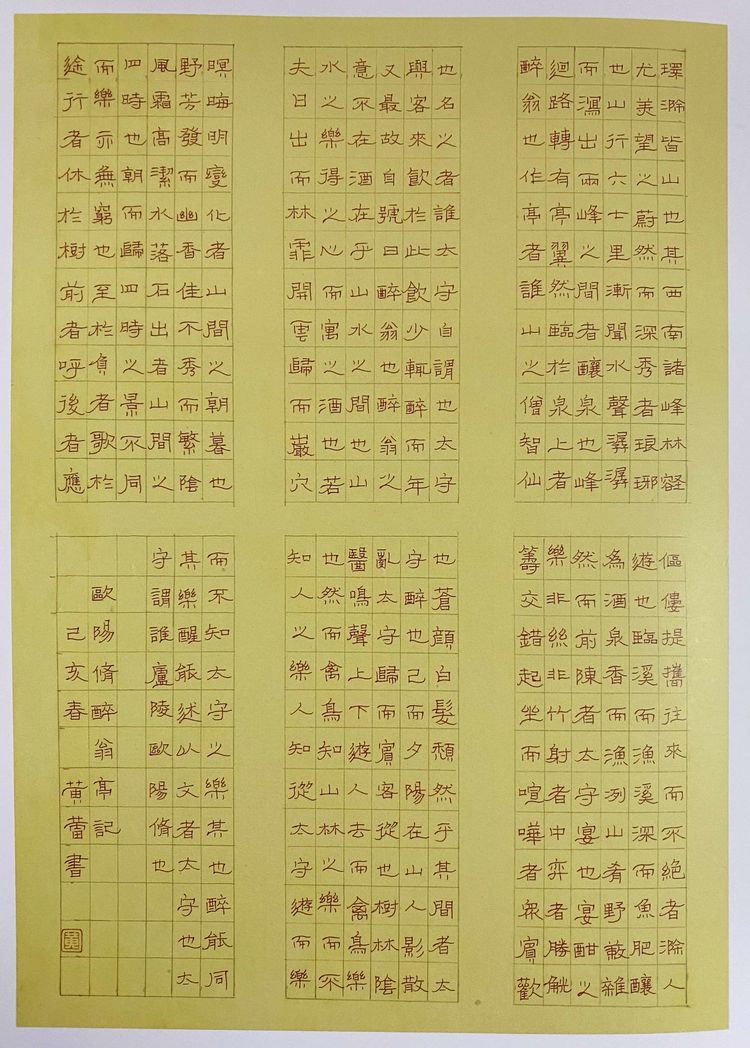 環滁皆山也其西南諸峰林壑
尤美望之蔚然而深秀者琅琊
也山行六七里漸聞水聲潺潺
而瀉出兩峰之間者釀泉也峰
迴路轉有亭翼然臨於泉上者
醉翁也作亭者誰山之僧智仙
也名之者誰太守自謂也太守
與客來飲於此飲少輒醉而年
又最故自號曰醉翁也醉翁之
意不在酒在乎山水之間也山
水之樂得之心而寓之酒也若
夫日出而林霏開雲歸而巖穴
暝晦明變化者山間之朝暮也
野芳發而幽香佳不秀而繁陰
風霜高潔水落石出者山間之
四時也朝而歸四時之景不同
而樂亦無窮也至於負者歌於
途行者休於樹前者呼後者應
傴僂提攜往來而不絕者滁人
遊也臨溪而漁溪深而魚肥釀
為酒泉香而漁冽山肴野蔌雜
然而前陳者太守宴也宴酣之
樂非絲非竹射者中弈者勝觥
籌交錯起坐而喧嘩者眾賓歡
也蒼顏白髮頹然乎其間者太
守醉也已而夕陽在山人影散
亂太守歸而賓客從也樹林陰
醫鳴聲上下遊人去而禽鳥樂
也然而禽鳥知山林之樂而不
知人之樂人知從太守遊而樂
而不知太守之樂其也醉能同
其樂醒能述以文者太守也太
守謂誰廬陵歐陽脩也
歐陽脩醉翁亭記
己亥春 黃蕾書
黃